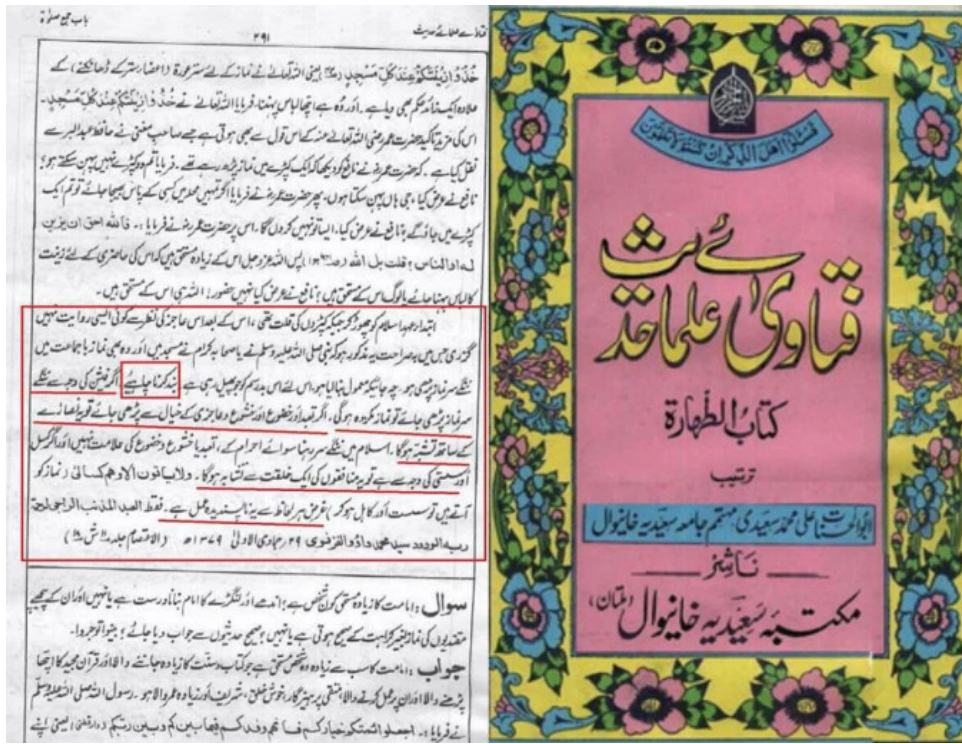 فتاوے علمائے حدیث
۲۹۱
باب جمع صلوٰۃ
خُذُوْا زِيْنَتَكُمْ عِنْدَ كُلِّ مَسْجِدٍ یعنی اللہ تعالےٰ نے نماز کے لئے ستر عورۃ (اعضار ستر کے ڈھانکنے) کے
علاوہ ایک زائد حکم بھی دیا ہے۔ اور وہ ہے اچھا لباس پہننا، فرمایا اللہ تعالےٰ نے خُذُوْا زِيْنَتَكُمْ عِنْدَ كُلِّ مَسْجِدٍ۔
اس کی مزید تاکید حضرت عمر رضی اللہ تعالےٰ عنہ کے اس قول سے بھی ہوتی ہے جسے صاحب مغنی نے حافظ عبدالبر سے
نقل کیا ہے۔ کہ حضرت عمرؓ نے نافع کو دیکھا کہ ایک کپڑے میں نماز پڑھ رہے تھے۔ فرمایا تم دو کپڑے نہیں پہن سکتے ہو؟
نافع نے عرض کیا، جی ہاں پہن سکتا ہوں۔ پھر حضرت عمرؓ نے فرمایا اگر تمہیں محلہ میں کسی کے پاس بھیجا جائے تو تم ایک
کپڑے میں جاؤ گے؟ نافع نے عرض کیا۔ ایسا تو نہیں کروں گا۔ اس پر حضرت عمرؓ نے فرمایا:۔ فالله احق ان يزين
له او الناس؟ قلت بل الله پس اللہ عزوجل اس کے زیادہ مستحق ہیں کہ اس کی حاضری کے لئے زینت
کا لباس پہنا جائے یا لوگ اس کے مستحق ہیں؟ نافع نے عرض کیا نہیں حضور! اللہ ہی اس کے مستحق ہیں۔
ابتداءِ عہد اسلام کو چھوڑ کر جبکہ کپڑوں کی قلت تھی، اس کے بعد اس عاجز کی نظر سے کوئی ایسی روایت نہیں
گزری جس میں بہ صراحت یہ مذکور ہو کہ نبی صلی اللہ علیہ وسلم نے یا صحابہ کرامؓ نے مسجد میں اور وہ بھی نماز باجماعت میں
ننگے سر نماز پڑھی ہو۔ چہ جائیکہ معمول بنا لیا ہو، اس لئے اس بد رسم کو جو پھیل رہی ہے بند کرنا چاہیئے اگر فیشن کی وجہ سے ننگے
سر نماز پڑھی جائے تو نماز مکروہ ہوگی۔ اگر تعبد اور خضوع اور خشوع و عاجزی کے خیال سے پڑھی جائے تو یہ نصاریٰ
کے ساتھ تشبہ ہوگا۔ اسلام میں ننگے سر رہنا سوائے احرام کے، تعبد یا خشوع و خضوع کی علامت نہیں اور اگر کسل
اور سستی کی وجہ سے ہے تو یہ منافقوں کی ایک خلقت سے تشابہ ہوگا۔ ولا ياتون الا وهم كسالى (نماز کو
آتے ہیں تو سست اور کاہل ہو کر) غرض ہر لحاظ سے یہ ناپسندیدہ عمل ہے۔ فقط العبد المذنب الراجی لرحمۃ
ربہ الودود سید محمد داؤد الغزنوی ۲۹؍ جمادی الاولیٰ ۱۳۷۹ھ (الاعتصام جلد ۱۱ ش ۱۸)
سوال: امامت کا زیادہ مستحق کون شخص ہے؟ اندھے اور لنگڑے کا امام بنانا درست ہے یا نہیں اور ان کے پیچھے
مقتدیوں کی نماز بغیر کراہت کے صحیح ہوتی ہے یا نہیں؟ صحیح حدیثوں سے جواب دیا جائے؟ بینوا توجروا۔
جواب: امامت کا سب سے زیادہ وہ شخص مستحق ہے جو کتاب و سنت کا زیادہ جاننے والا اور قرآن مجید کا اچھا
پڑھنے والا اور ان پر عمل کرنے والا، متقی پرہیزگار، خوش خلق، شریف اور زیادہ عمر والا ہو۔ رسول اللہ صلی اللہ علیہ وسلم
نے فرمایا:۔ اجعلوا ائمتكم خياركم فانهم وفدكم فيما بينكم وبين ربكم (دارقطنی) یعنی اپنے
فَسْئَلُوْا اَهْلَ الذِّكْرِ اِنْ كُنْتُمْ لَا تَعْلَمُوْنَ
فتاویٰ علمائے حدیث
کتاب الطہارۃ
ترتیب
ابوالحسنات علی محمد سعیدی مہتمم جامعہ سعیدیہ خانیوال
ناشر
مکتبہ سعیدیہ خانیوال (ملتان)